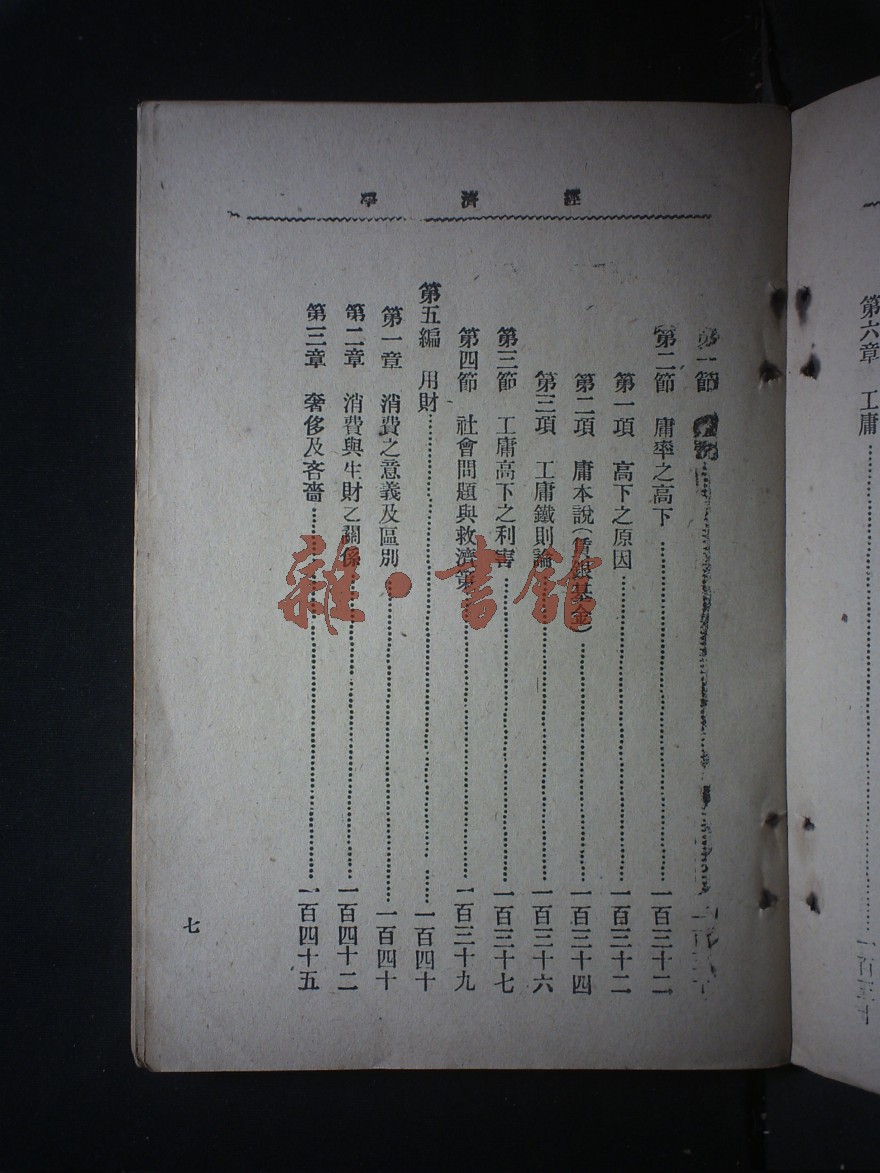 經濟學
第一節
第二節 庸率之高下……一百三十二
第一項 高下之原因……一百三十二
第二項 庸本說(賃銀基金)……一百三十四
第三項 工庸鐵則論……一百三十六
第三節 工庸高下之利害……一百三十七
第四節 社會問題與救濟策……一百三十九
第五編 用財……一百四十
第一章 消費之意義及區別……一百四十
第二章 消費與生財之關係……一百四十二
第三章 奢侈及吝嗇……一百四十五
七
第六章 工庸……一百三十
雜·書館